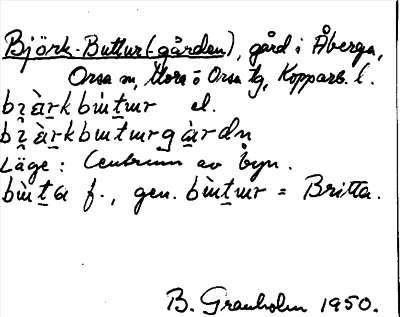 Björk-Buttur(-gården), gård i Åberga,
Orsa sn, Mora o Orsa tg, Kopparb. l.
bɪ̯àrkbùtur el.
bɪ̯àrkbuturgàrdn
Läge: Centrum av byn.
bùta f., gen. bùtur = Britta.
B. Granholm 1950.